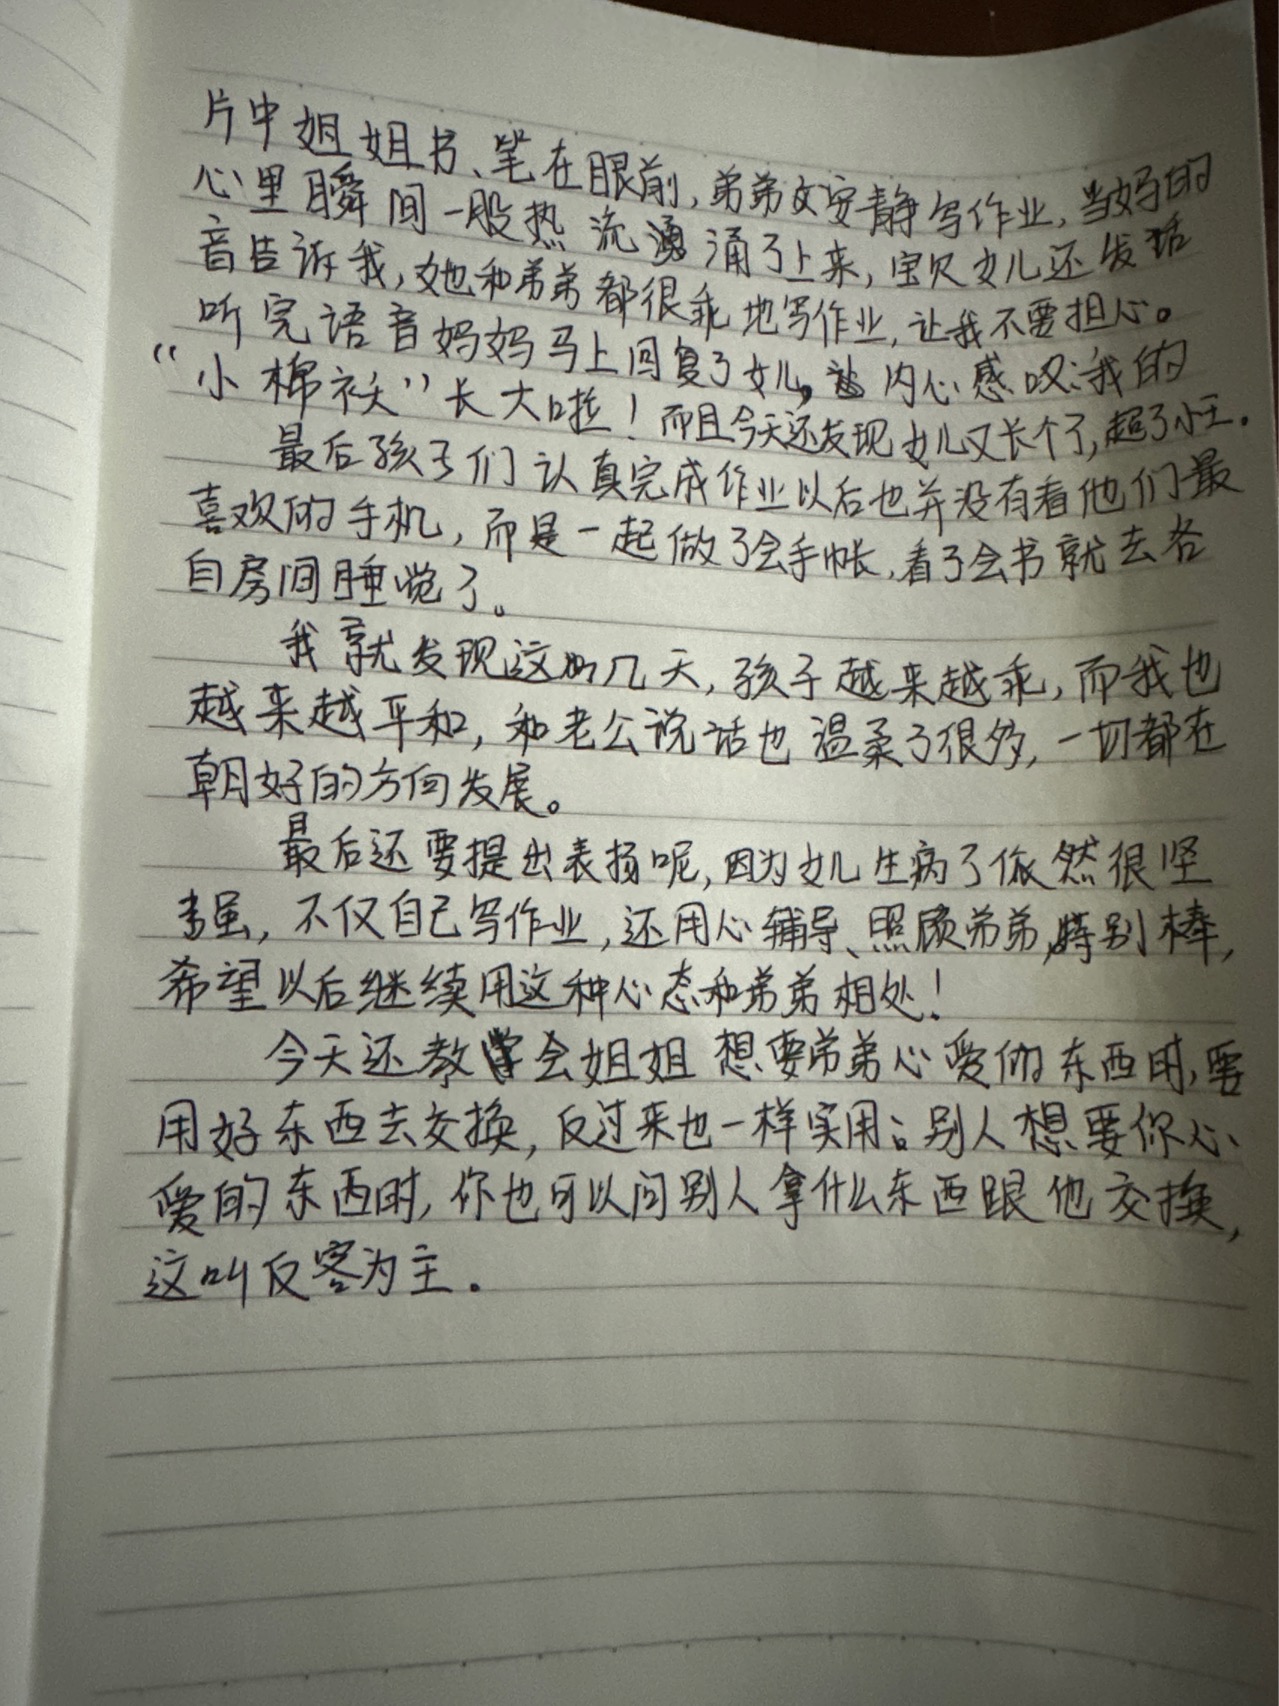 片中姐姐书、笔在眼前，弟弟文安静写作业，当妈的
心里瞬间一股热流涌了上来，宝贝女儿还发话
音告诉我，她和弟弟都很乖地写作业，让我不要担心。
听完语音妈妈马上回复了女儿，内心感叹：我的
“小棉袄”长大啦！而且今天还发现女儿又长个了，超了小王.
最后孩子们认真完成作业以后也并没有看他们最
喜欢的手机，而是一起做了会手帐，看了会书就去各
自房间睡觉了。
我就发现这几天，孩子越来越乖，而我也
越来越平和，和老公说话也温柔了很多，一切都在
朝好的方向发展。
最后还要提出表扬呢，因为女儿生病了依然很坚
强，不仅自己写作业，还用心辅导、照顾弟弟，特别棒，
希望以后继续用这种心态和弟弟相处！
今天还教会姐姐想要弟弟心爱的东西时，要
用好东西去交换，反过来也一样实用；别人想要你心
爱的东西时，你也可以问别人拿什么东西跟他交换，
这叫反客为主.